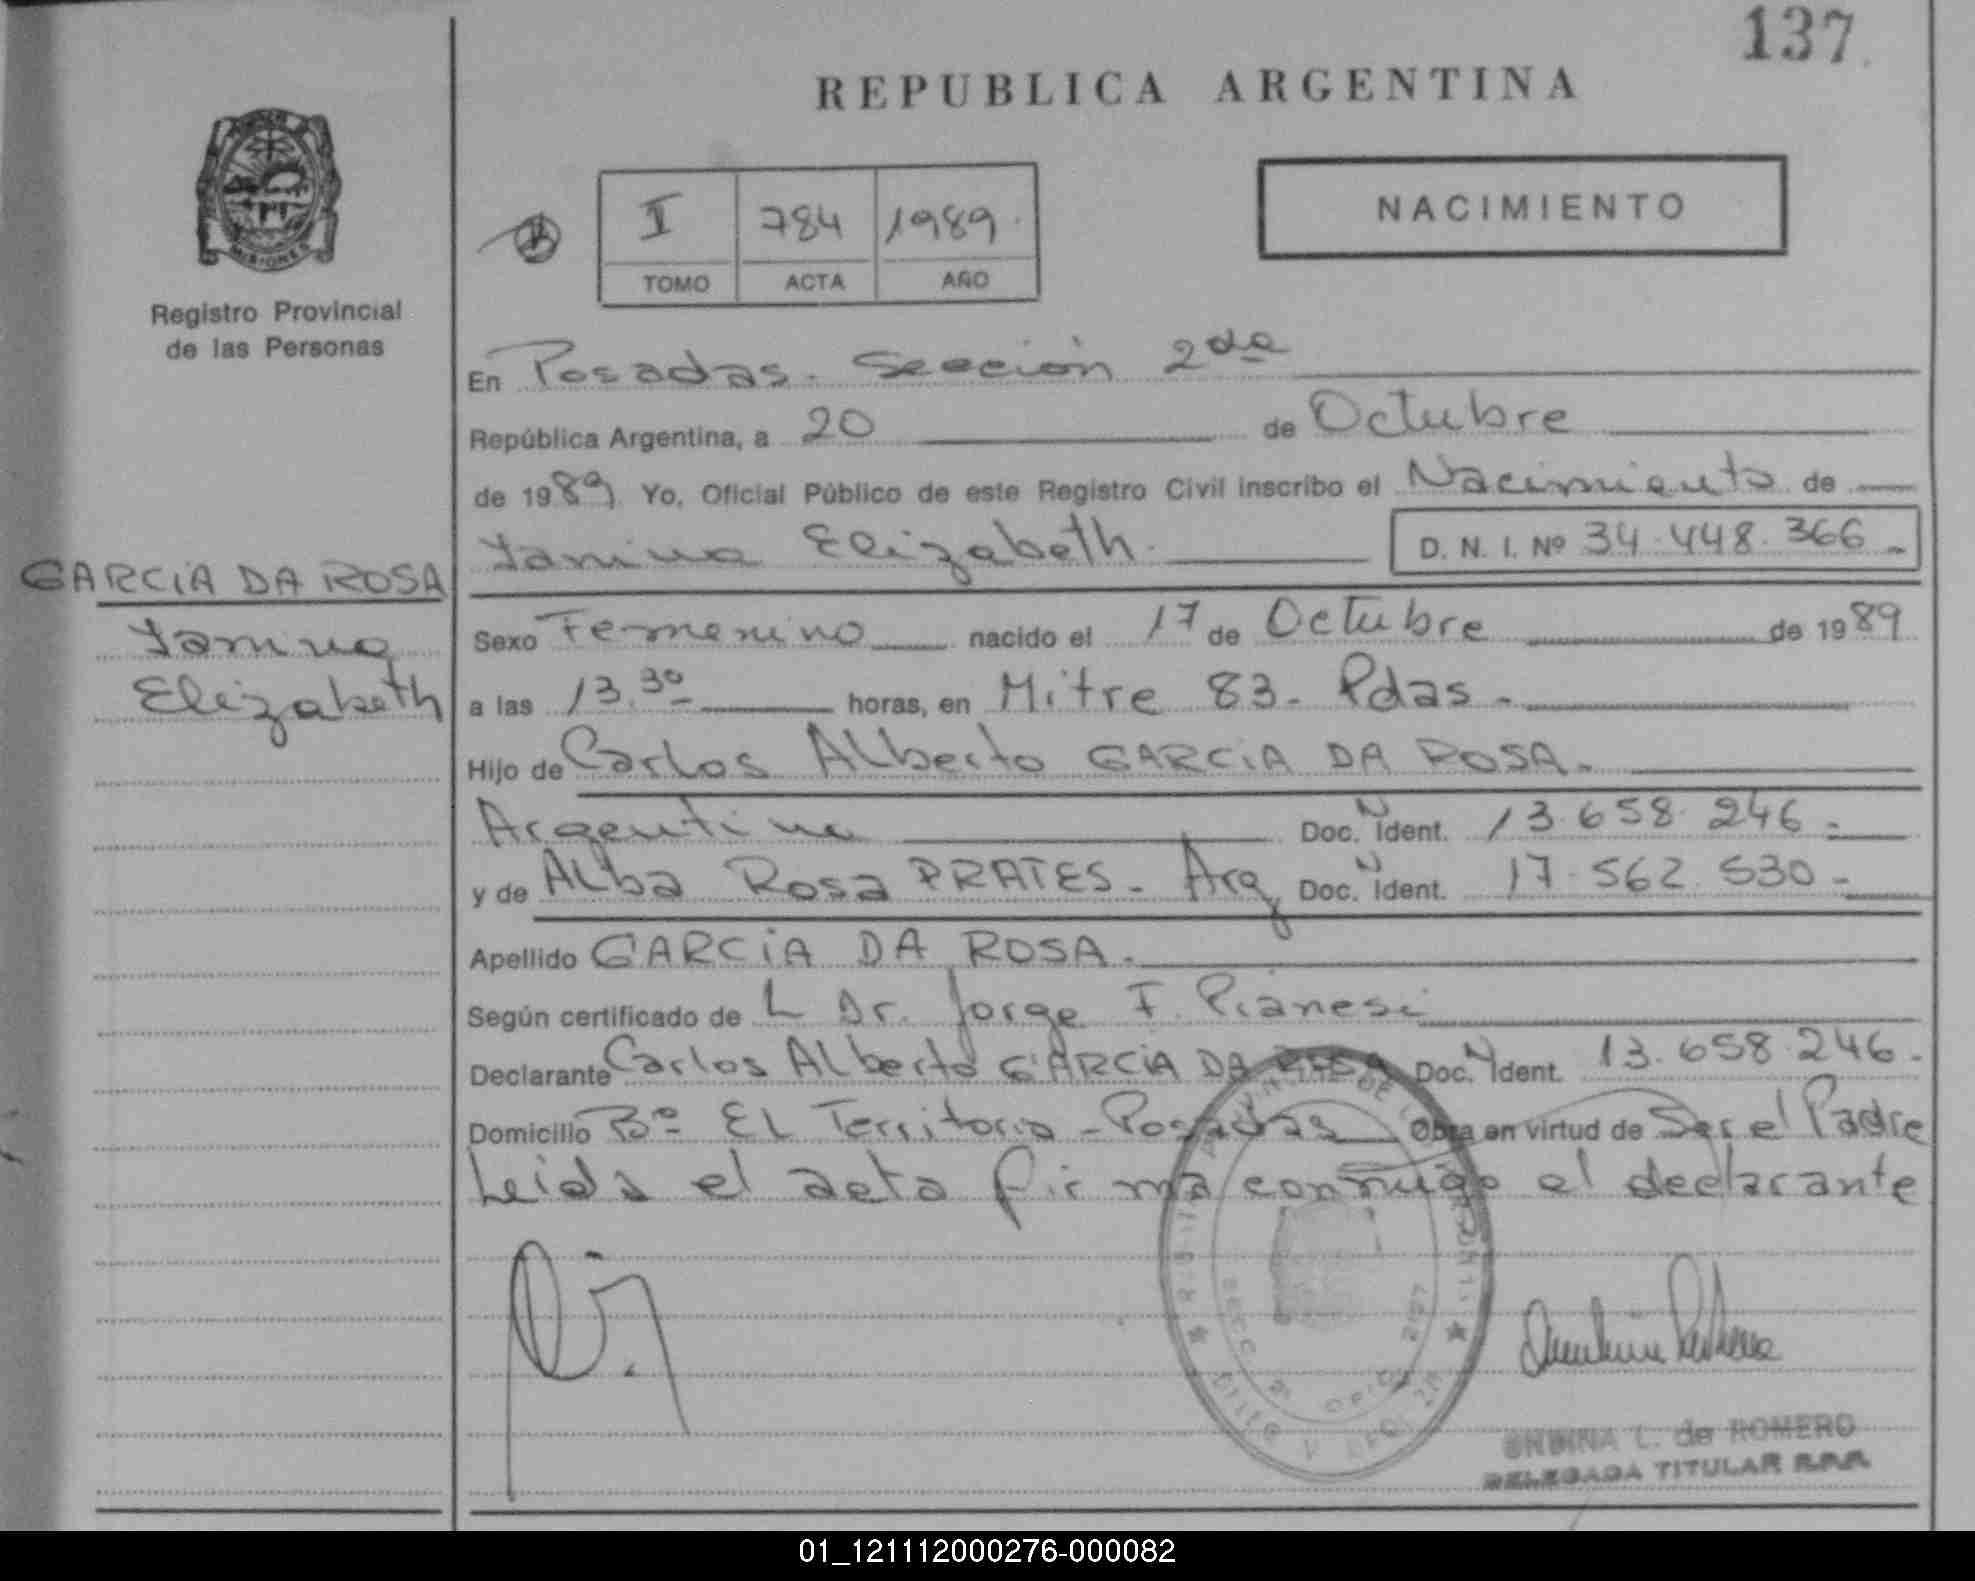 137
REPUBLICA ARGENTINA
MISIONES
Registro Provincial
de las Personas
I 784 1989
TOMO ACTA AÑO
NACIMIENTO
En Posadas. Sección 2da
República Argentina, a 20 de Octubre
de 1989 Yo, Oficial Público de este Registro Civil inscribo el Nacimiento de
Yanina Elizabeth. D. N. I. Nº 34.448.366
GARCIA DA ROSA
Yanina
Elizabeth
Sexo Femenino nacido el 17 de Octubre de 1989
a las 13.30 horas, en Mitre 83 - Pdas -
Hijo de Carlos Alberto GARCIA DA ROSA.
Argentina Doc. N Ident. 13.658.246 -
y de Alba Rosa PRATES - Arg Doc. N Ident. 17.562.530 -
Apellido GARCIA DA ROSA.
Según certificado de L Dr. Jorge F. Pianesi
Declarante Carlos Alberto GARCIA DA ROSA Doc. N Ident. 13.658.246.
Domicilio Bº EL Territorio - Posadas Obra en virtud de Ser el Padre
Leida el acta firma conmigo el declarante
ONDINA L. de ROMERO
DELEGADA TITULAR R.P.P.
01_121112000276-000082